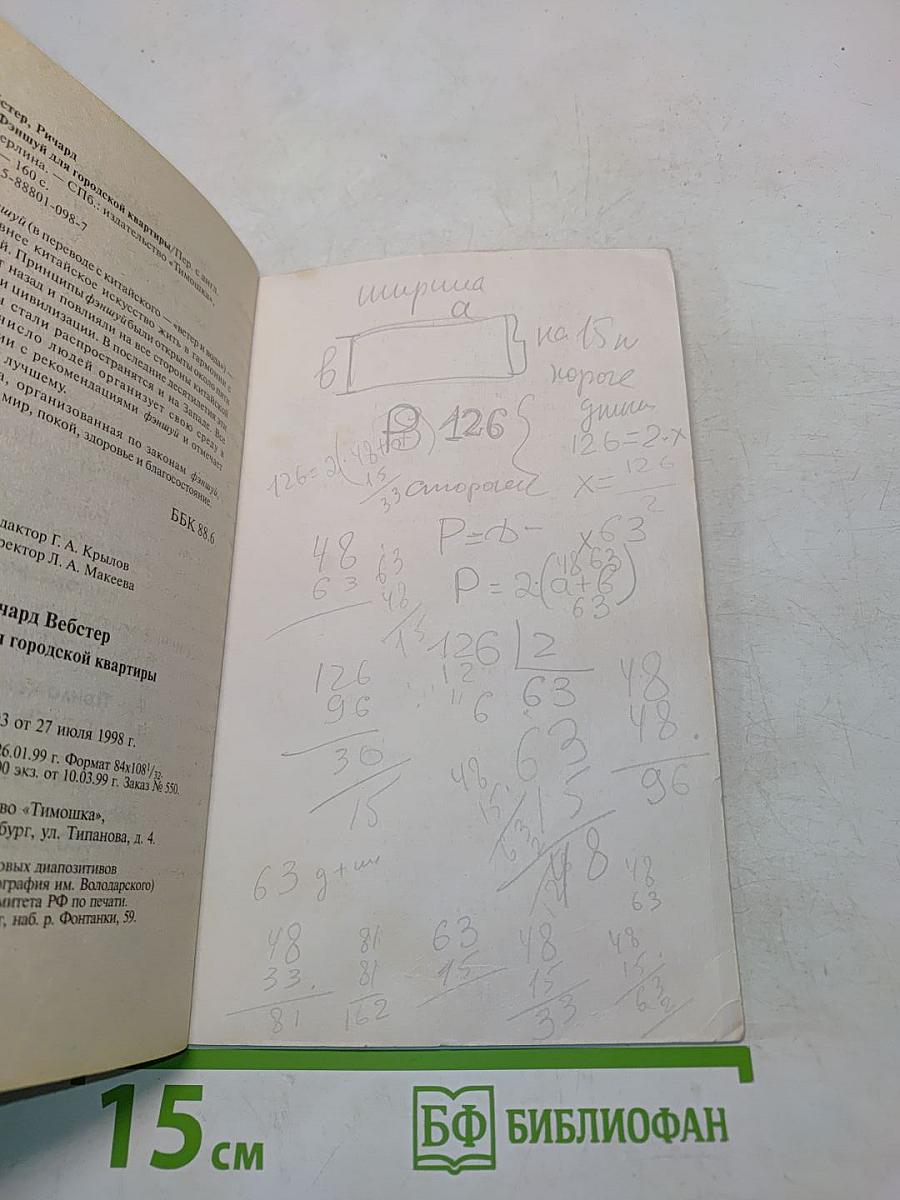 стер, Ричард
Фэншуй для городской квартиры/Пер. с англ.
ерлина. — СПб.: издательство «Тимошка»,
— 160 с.
5-88801-098-7
ншуй (в переводе с китайского — «ветер и вода») —
внее китайское искусство жить в гармонии с
й. Принципы фэншуй были открыты около пяти
т назад и повлияли на все стороны китайской
и цивилизации. В последние десятилетия эти
ы стали распространятся и на Западе. Все
число людей организует свою среду в
ии с рекомендациями фэншуй и отмечает
лучшему.
а, организованная по законам фэншуй,
мир, покой, здоровье и благосостояние.
ББК 88.6
дактор Г. А. Крылов
ректор Л. А. Макеева
чард Вебстер
я городской квартиры
3 от 27 июля 1998 г.
26.01.99 г. Формат 84х108 1/32.
00 экз. от 10.03.99 г. Заказ № 550.
во «Тимошка»,
бург, ул. Типанова, д. 4.
овых диапозитивов
ография им. Володарского)
митета РФ по печати.
г, наб. р. Фонтанки, 59.
ширина
a
в
на 15 м
короче
длины
P 126
126=2·x
126=2(·48+
15
33
стороней
x=126/2
P=
x 63
48 63
P=2·(a+в)
63
48
63
63
48
15
126 2
12 63
6
126
96
30
15
48
48.
96
63
15
48
48
15.
63
63 д+ш
48
63
48
33.
81
81
81
162
63
15
48
15
33
48
15.
63
15 см
БФ БИБЛИОФАН